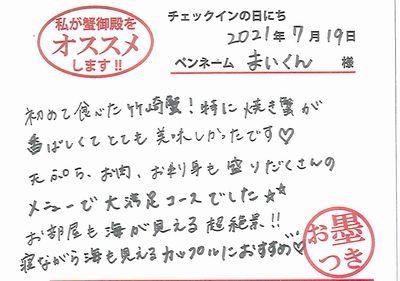 私が蟹御殿を
オススメ
します!!
チェックインの日にち
2021年7月19日
ペンネーム まいくん 様
初めて食べた竹崎蟹!特に焼き蟹が
香ばしくてとても美味しかったです♡
天ぷら、お肉、お刺身も盛りだくさんの
メニューで大満足コースでした☆☆
お部屋も海が見える超絶景!!
寝ながら海も見えるカップルにおすすめ♡
お墨
つき